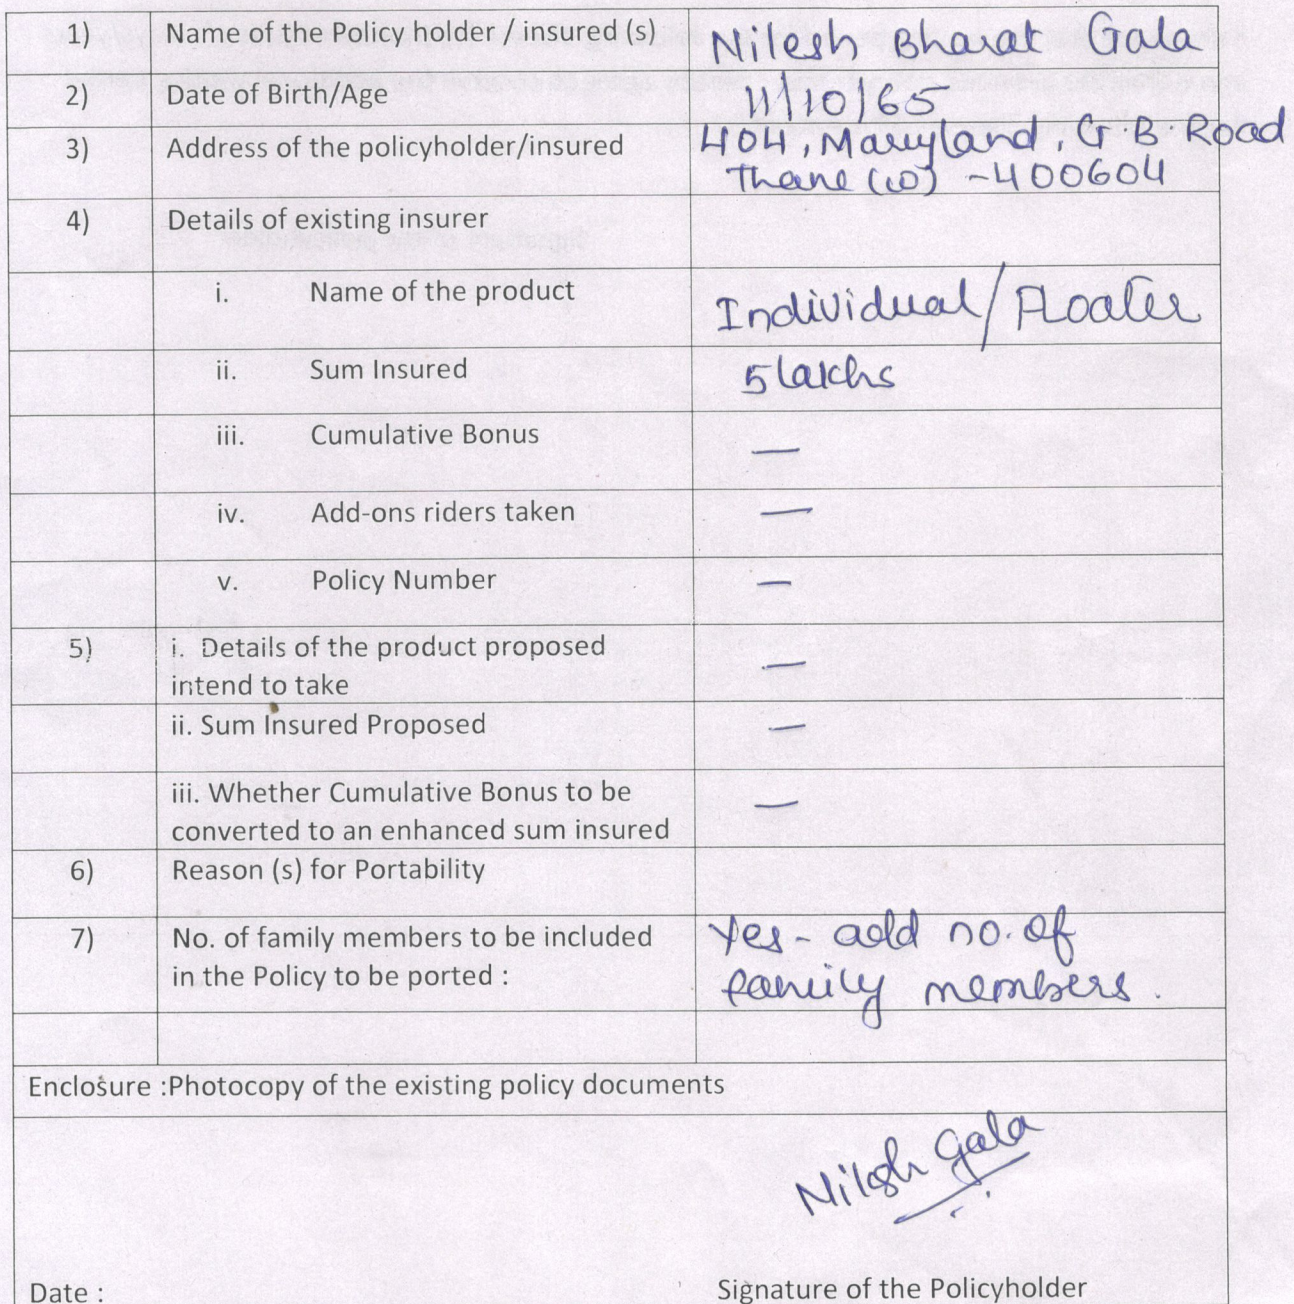 1) Name of the Policy holder / insured (s) Nilesh Bharat Gala
2) Date of Birth/Age 11/10/65
3) Address of the policyholder/insured 404, Maryland, G B Road
Thane (W) - 400604
4) Details of existing insurer
i. Name of the product Individual / Floater
ii. Sum Insured 5 lakhs
iii. Cumulative Bonus —
iv. Add-ons riders taken —
v. Policy Number —
5) i. Details of the product proposed
intend to take —
ii. Sum Insured Proposed —
iii. Whether Cumulative Bonus to be
converted to an enhanced sum insured —
6) Reason (s) for Portability
7) No. of family members to be included Yes - add no. of
in the Policy to be ported : family members.
Enclosure :Photocopy of the existing policy documents
Nilesh Gala
Date : Signature of the Policyholder